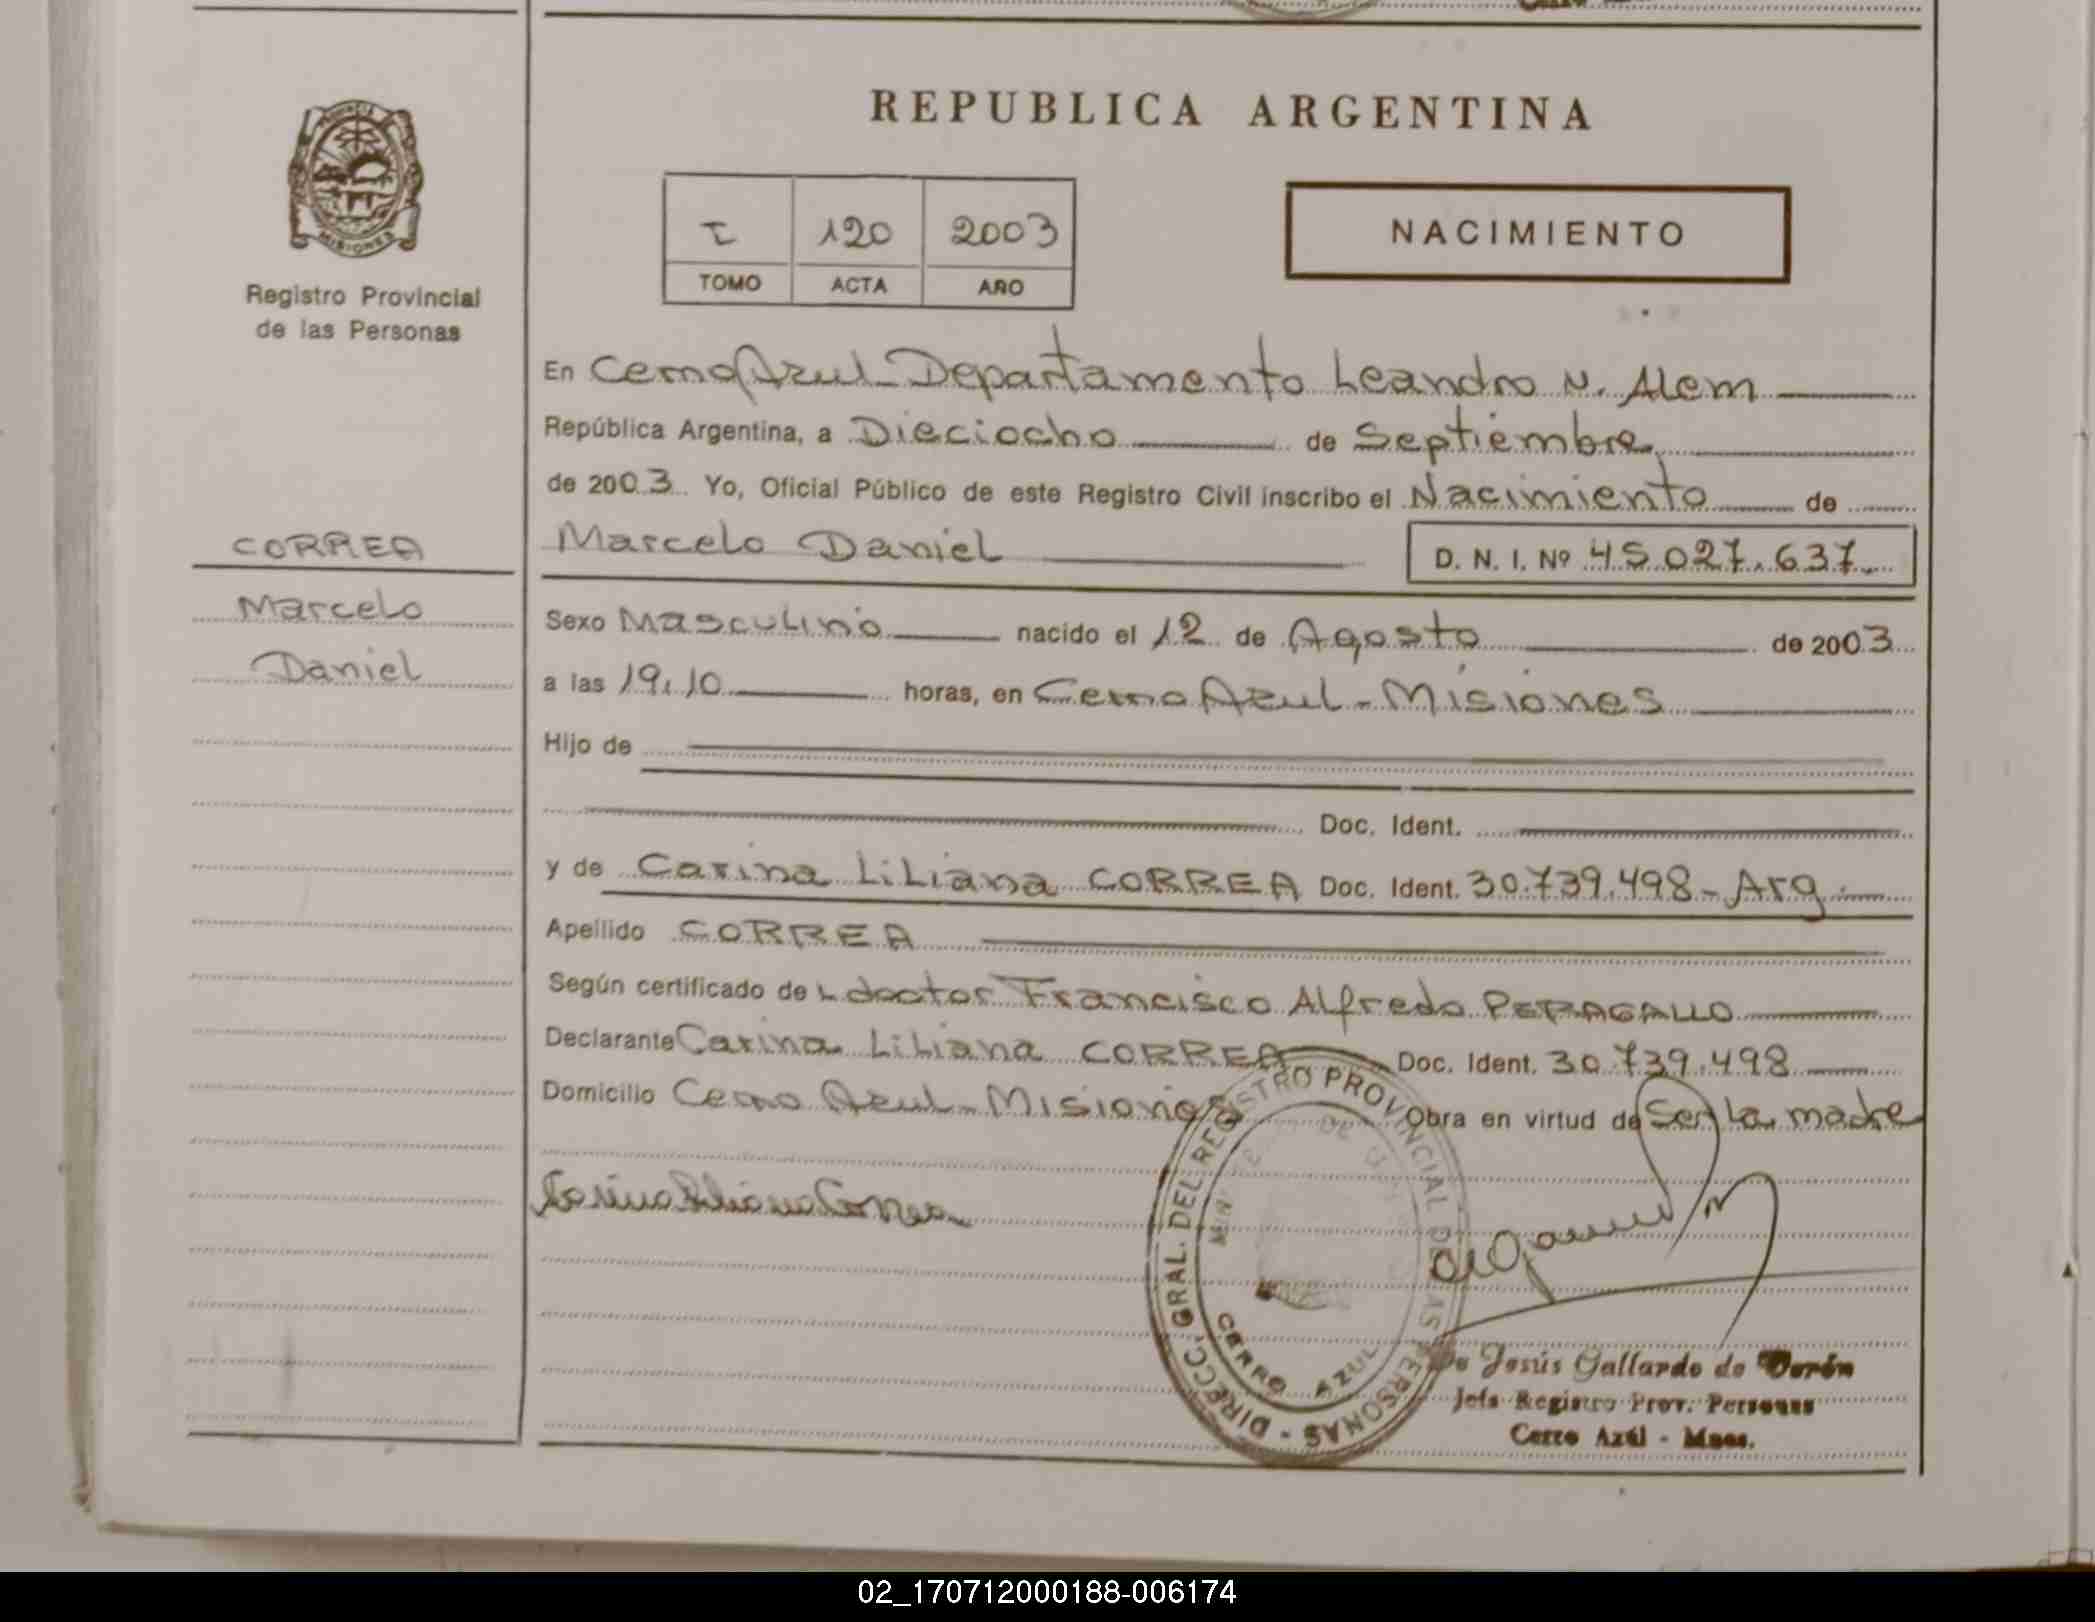 REPUBLICA ARGENTINA
MISIONES
Registro Provincial
de las Personas
I 120 2003
TOMO ACTA AÑO
NACIMIENTO
En Cerro Azul - Departamento Leandro N. Alem
República Argentina, a Dieciocho de Septiembre
de 2003 Yo, Oficial Público de este Registro Civil inscribo el Nacimiento de
Marcelo Daniel D. N. I. Nº 45.027.637
CORREA
Marcelo
Daniel
Sexo Masculino nacido el 12 de Agosto de 2003
a las 19,10 horas, en Cerro Azul - Misiones
Hijo de
Doc. Ident.
y de Carina Liliana CORREA Doc. Ident. 30.739.498 - Arg.
Apellido CORREA
Según certificado de L doctor Francisco Alfredo PERAGALLO
Declarante Carina Liliana CORREA Doc. Ident. 30.739.498
Domicilio Cerro Azul - Misiones Obra en virtud de Ser La madre
Carina Liliana Correa
DIRECC. GRAL. DEL REGISTRO PROVINCIAL DE LAS PERSONAS -
CERRO AZUL
de Jesús Gallardo de
Jefa Registro Prov. Personas
Cerro Azul - Mnes.
02_170712000188-006174